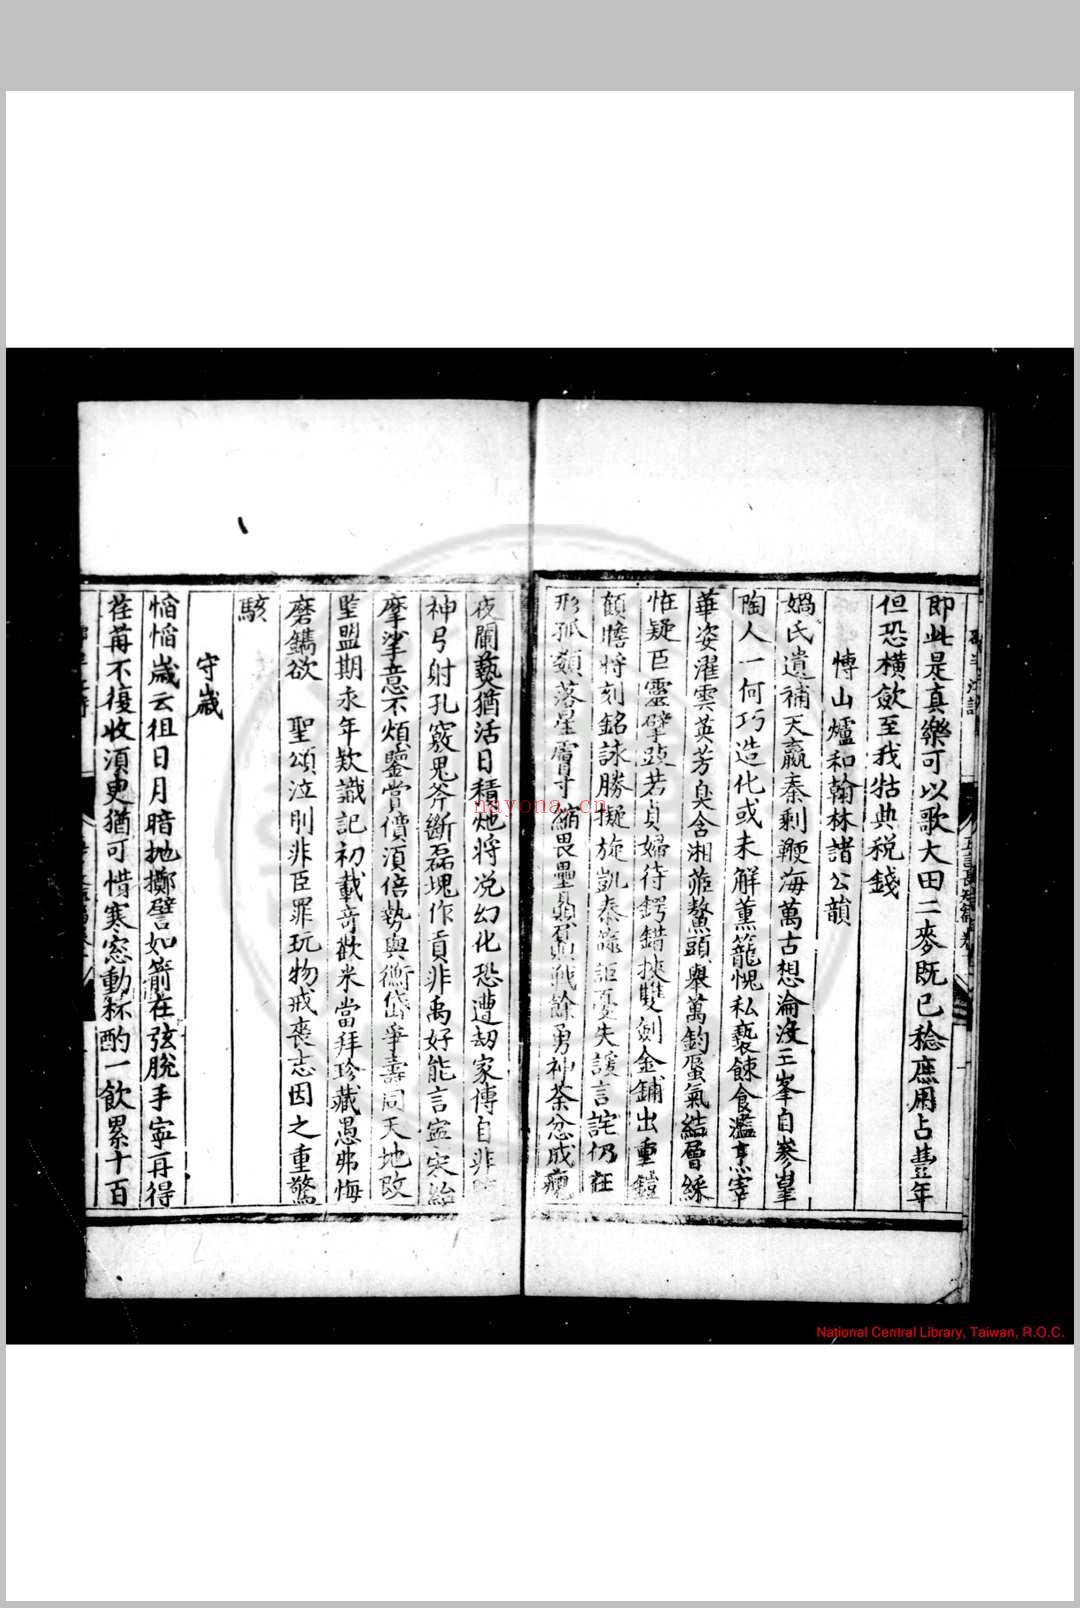 即此是真樂可以歌大田二麥既已稔庶用占豐年
但恐橫歛至我牯典税錢
慱山爐和翰林諸公韻
媧氏遺補天嬴秦剩鞭海萬古想淪没三峯自參
陶人一何巧造化或未解薰籠愧私褻餗食濫烹宰
華姿濯雲英芳臭含湘茝鰲頭舉萬鈞蜃氣結層綵
惟疑巨靈擘 若貞婦待鍔錯挾雙劍金鋪出重鎧
顧瞻將刻銘詠勝擬旋凱 詎憂失諼言詫仍在
形孤纇落星膚寸縮畏壘 戰餘勇神荼忿成
夜闌爇猶活日積灺將浼幻化恐遭刼家傳自非
神弓射孔竅鬼斧斷磊塊作貢非禹好能言寧宋紿
摩挲意不煩鑒賞價須倍勢與衡岱爭壽同天地改
監盟期永年欵識記初載奇歡米當拜珍藏愚弗悔
磨鐫欲 聖頌泣刖非臣罪玩物戒喪志因之重驚
駭
守歲
慆慆歲云徂日月暗抛擲譬如箭在弦脫手寧再得
荏苒不復收須臾猶可惜寒窓動 酌一飲累十百
nayona.cn
National Central Library, Taiwan, R.O.C.